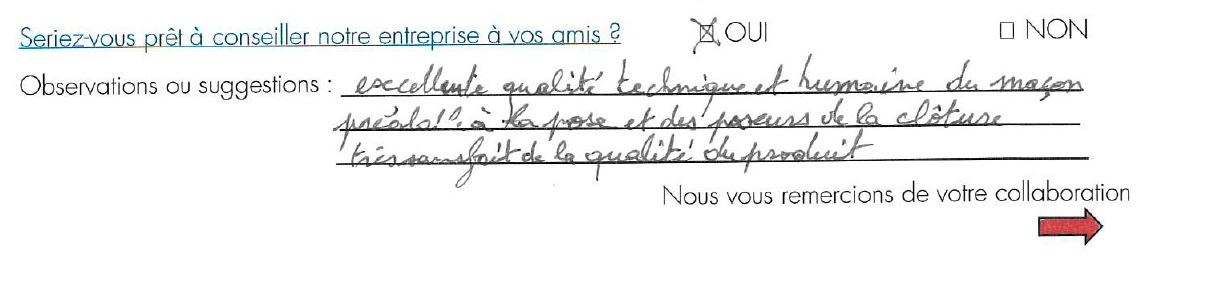 Seriez-vous prêt à conseiller notre entreprise à vos amis ? ☒ OUI ☐ NON
Observations ou suggestions : excellente qualité technique et humaine du maçon
à la pose et des poseurs de la clôture
très sansfait de la qualité du produit
Nous vous remercions de votre collaboration